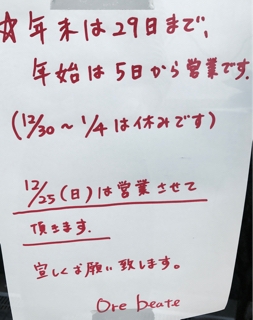 ☆年末は29日まで、
年始は5日から営業です.
(12/30～1/4は休みです)
12/25(日)は営業させて
頂きます.
宜しくお願い致します。
Ore beate